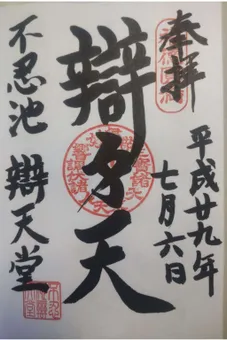 奉拝
平成廿九年
七月六日
辯才天
不忍池 辯天堂